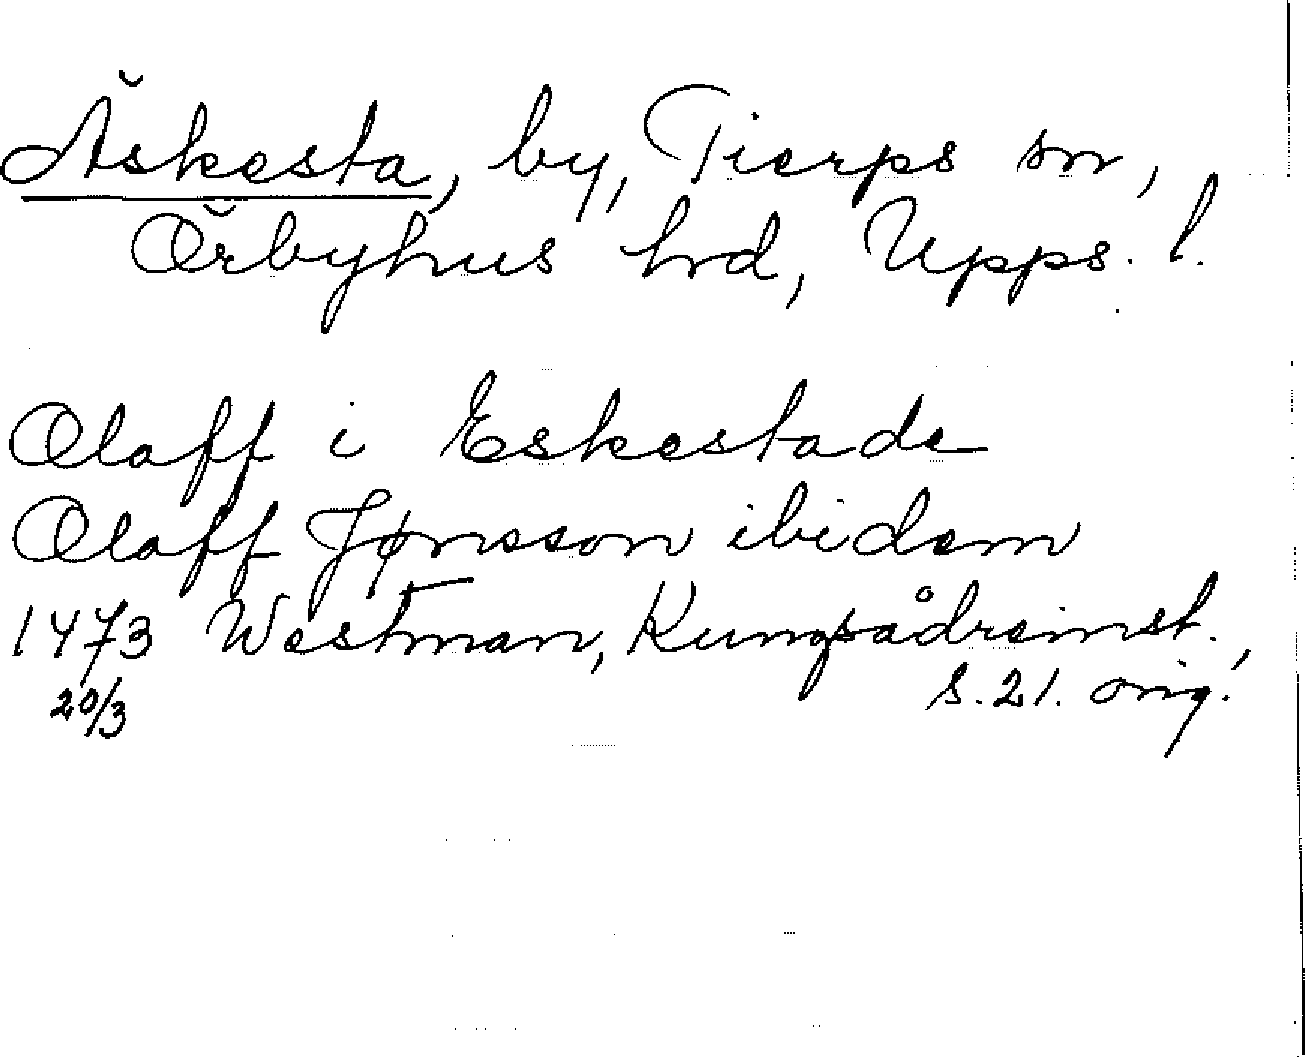 Äskesta, by, Tierps sn,
Örbyhus hrd, Upps. l.
Olaff i Eskestade
Olaff Jønsson ibidem
1473 Westman, Kungsådreinst.,
20/3 s. 21. orig.